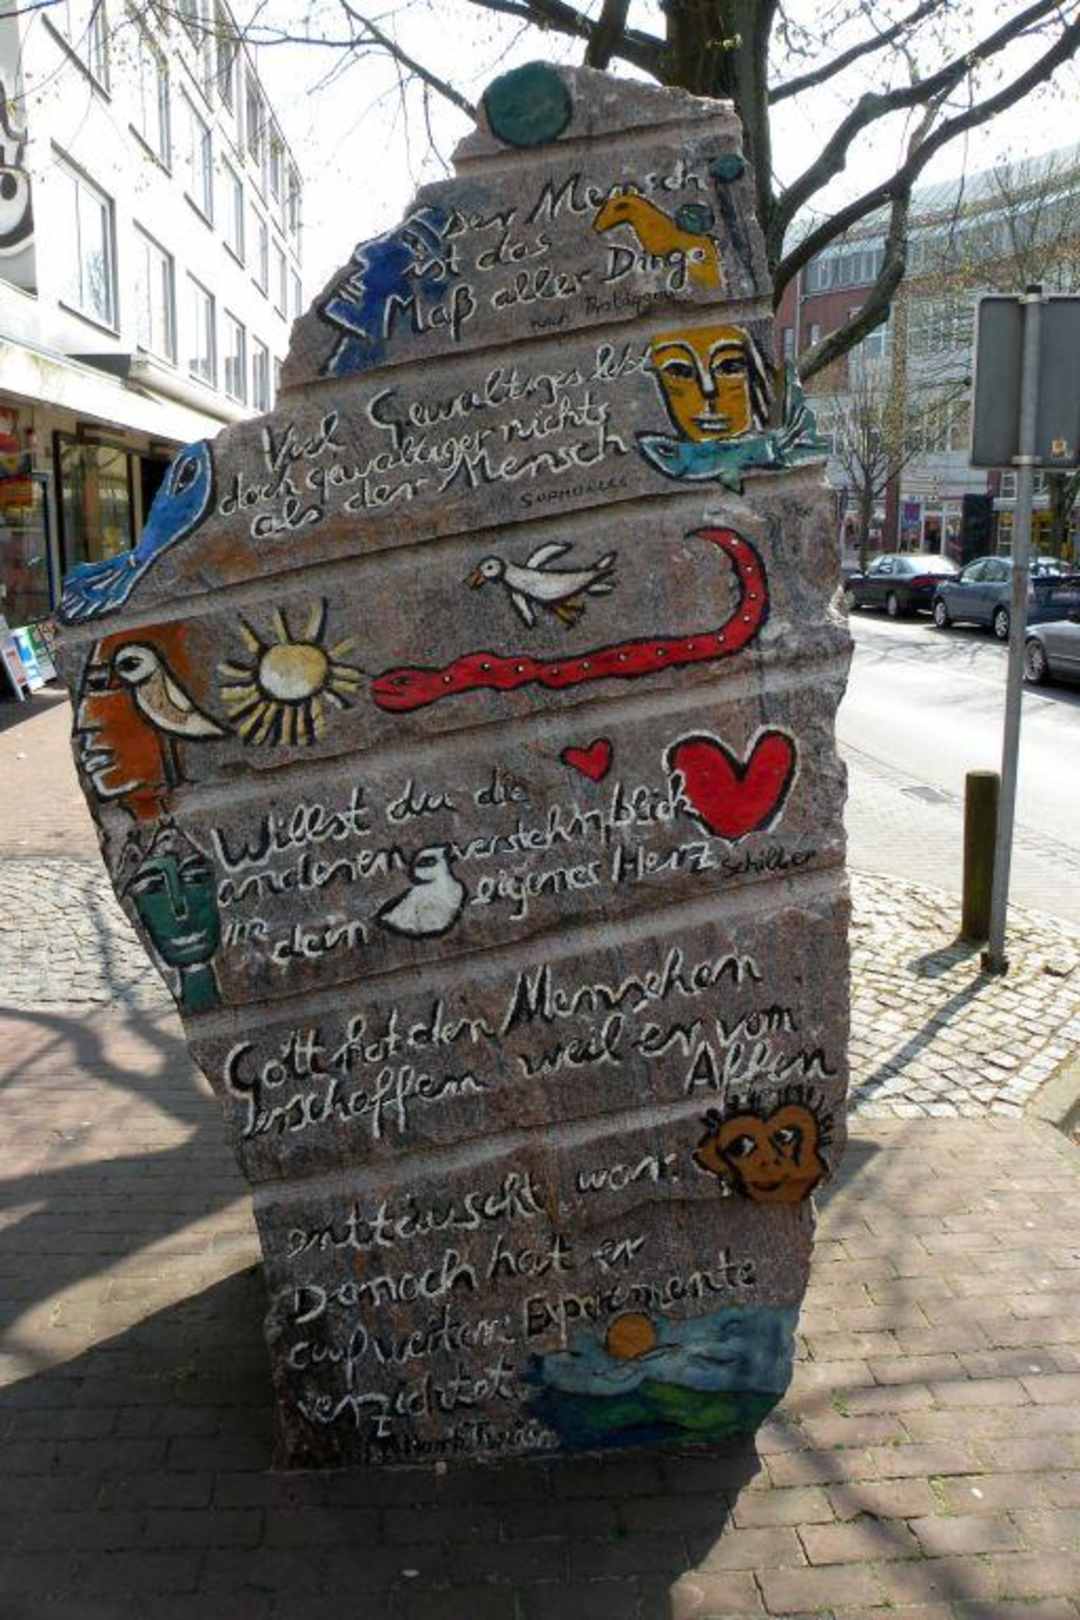 Der Mensch
ist das
Maß aller Dinge
nach Protagoras
Viel Gewaltiges lebt
doch gewaltiger nichts
als der Mensch
SOPHOKLES
Willst du die
anderen verstehn, blick
in dein eigenes Herz Schiller
Gott hat den Menschen
erschaffen weil er vom
Affen
enttäuscht war.
Danach hat er
auf weitere Experimente
verzichtet.
Mark Twain